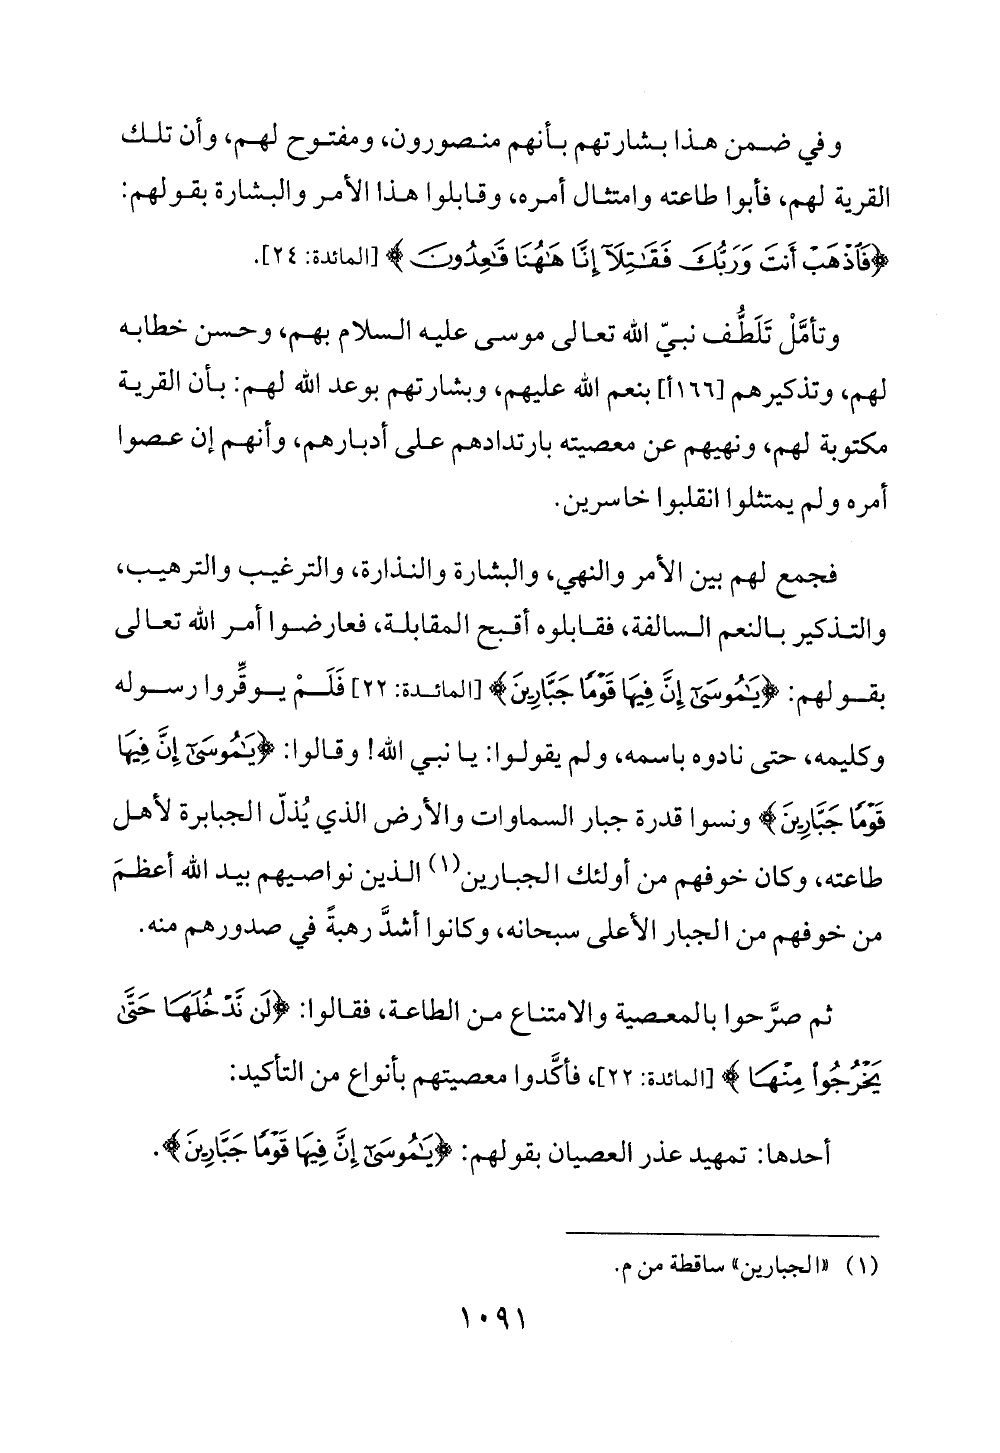 وفي ضمن هذا بشارتهم بأنهم منصورون، ومفتوح لهم، وأن تلك
القرية لهم، فأبوا طاعته وامتثال أمره، وقابلوا هذا الأمر والبشارة بقولهم:
﴿فَٱذْهَبْ أَنتَ وَرَبُّكَ فَقَـٰتِلَآ إِنَّا هَـٰهُنَا قَـٰعِدُونَ﴾ [المائدة: ٢٤].
وتأمَّلْ تَلَطُّف نبيّ الله تعالى موسى عليه السلام بهم، وحسن خطابه
لهم، وتذكيرهم [١٦٦أ] بنعم الله عليهم، وبشارتهم بوعد الله لهم: بأن القرية
مكتوبة لهم، ونهيهم عن معصيته بارتدادهم على أدبارهم، وأنهم إن عصوا
أمره ولم يمتثلوا انقلبوا خاسرين.
فجمع لهم بين الأمر والنهي، والبشارة والنذارة، والترغيب والترهيب،
والتذكير بالنعم السالفة، فقابلوه أقبح المقابلة، فعارضوا أمر الله تعالى
بقولهم: ﴿يَـٰمُوسَىٰٓ إِنَّ فِيهَا قَوْمًا جَبَّارِينَ﴾ [المائدة: ٢٢] فَلَمْ يوقِّروا رسوله
وكليمه، حتى نادوه باسمه، ولم يقولوا: يا نبي الله! وقالوا: ﴿يَـٰمُوسَىٰٓ إِنَّ فِيهَا
قَوْمًا جَبَّارِينَ﴾ ونسوا قدرة جبار السماوات والأرض الذي يُذلّ الجبابرة لأهل
طاعته، وكان خوفهم من أولئك الجبارين(١) الذين نواصيهم بيد الله أعظمَ
من خوفهم من الجبار الأعلى سبحانه، وكانوا أشدَّ رهبةً في صدورهم منه.
ثم صرَّحوا بالمعصية والامتناع من الطاعة، فقالوا: ﴿لَن نَّدْخُلَهَا حَتَّىٰ
يَخْرُجُوا۟ مِنْهَا﴾ [المائدة: ٢٢]، فأكَّدوا معصيتهم بأنواع من التأكيد:
أحدها: تمهيد عذر العصيان بقولهم: ﴿يَـٰمُوسَىٰٓ إِنَّ فِيهَا قَوْمًا جَبَّارِينَ﴾.
(١) «الجبارين» ساقطة من م.
١٠٩١